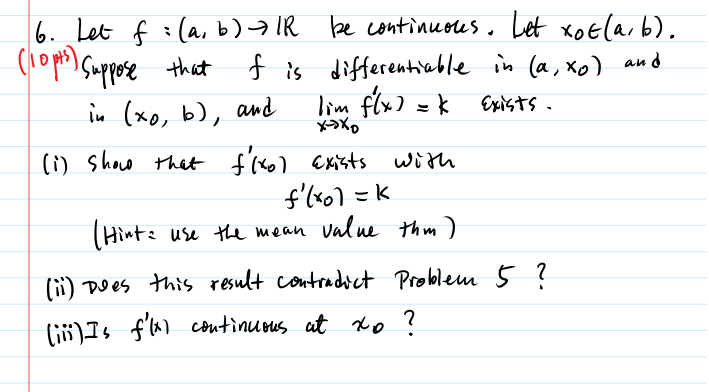 6. Let f : (a, b) → IR be continuous. Let x₀ ∈ (a, b).
(10 pts) Suppose that f is differentiable in (a, x₀) and
in (x₀, b), and lim f'(x) = k exists.
x→x₀
(i) Show that f'(x₀) exists with
f'(x₀) = k
(Hint: use the mean value thm)
(ii) Does this result contradict Problem 5 ?
(iii) Is f'(x) continuous at x₀ ?